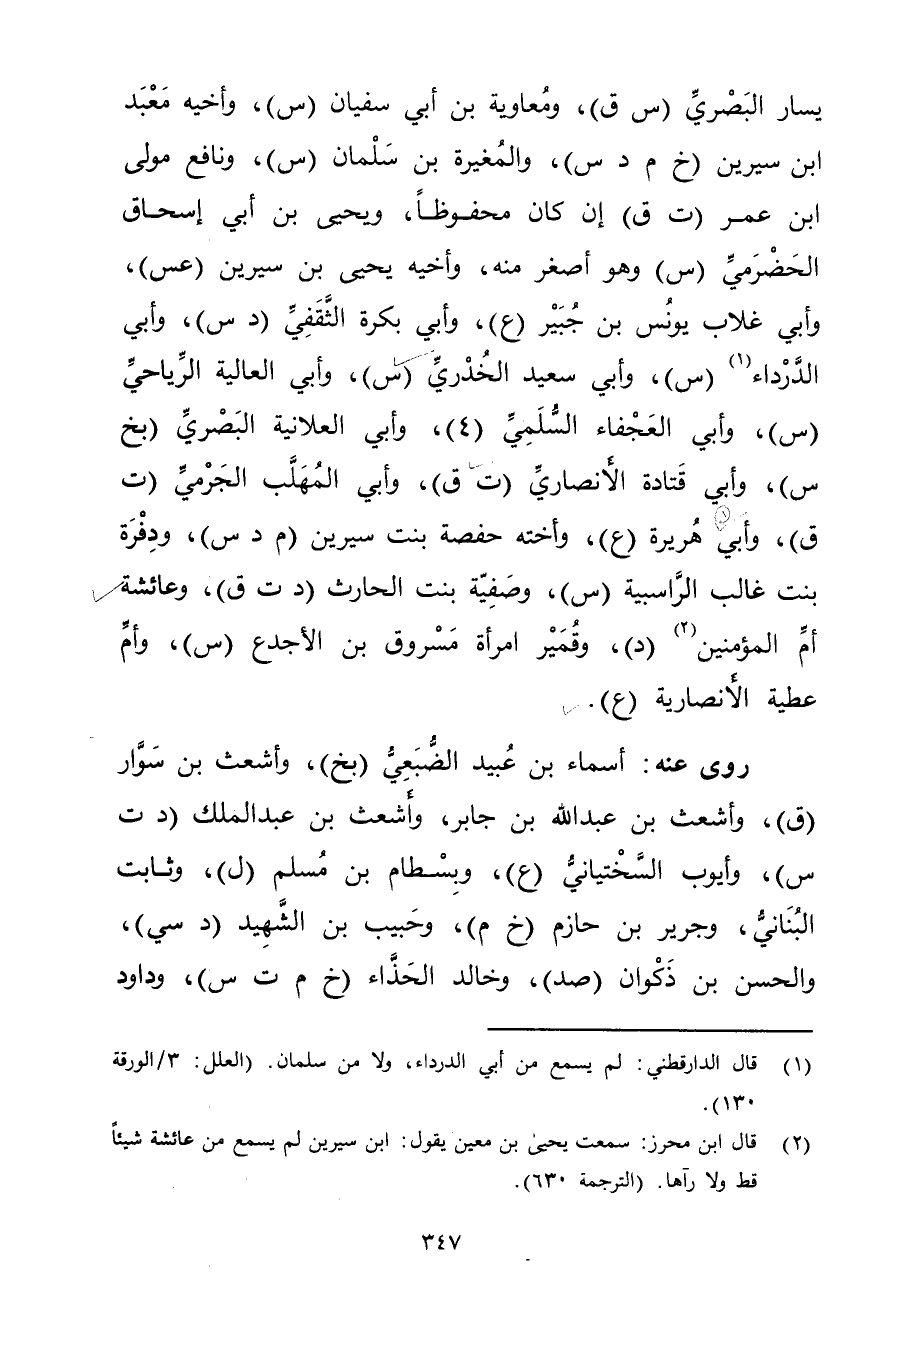 يسار البَصْريِّ (س ق)، ومُعاوية بن أبي سفيان (س)، وأخيه مَعْبَد
ابن سيرين (خ م د س)، والمُغيرة بن سَلْمان (س)، ونافع مولى
ابن عمر (ت ق) إن كان محفوظاً، ويحيى بن أبي إسحاق
الحَضْرَميِّ (س) وهو أصغر منه، وأخيه يحيى بن سيرين (عس)،
وأبي غلاب يونُس بن جُبَيْر (ع)، وأبي بكرة الثَّقَفِيِّ (د س)، وأبي
الدَّرْداء(١) (س)، وأبي سعيد الخُدْريِّ (س)، وأبي العالية الرِّياحيِّ
(س)، وأبي العَجْفاء السُّلَمِيِّ (٤)، وأبي العلانية البَصْريِّ (بخ
س)، وأبي قَتادة الأَنصاريِّ (ت ق)، وأبي المُهَلَّب الجَرْميِّ (ت
ق)، وأبي هُريرة (ع)، وأخته حفصة بنت سيرين (م د س)، ودِفْرَة
بنت غالب الرَّاسبية (س)، وصَفِيّة بنت الحارث (د ت ق)، وعائشة
أمِّ المؤمنين(٢) (د)، وقُمَيْر امرأة مَسْروق بن الأجدع (س)، وأمِّ
عطية الأَنصارية (ع).
روى عنه: أسماء بن عُبيد الضُّبَعِيُّ (بخ)، وأشعث بن سَوَّار
(ق)، وأشعث بن عبدالله بن جابر، وأَشعث بن عبدالملك (د ت
س)، وأيوب السَّخْتيانيُّ (ع)، وبِسْطام بن مُسلم (ل)، وثابت
البُنَانيُّ، وجرير بن حازم (خ م)، وحَبيب بن الشَّهِيد (د سي)،
والحسن بن ذَكْوان (صد)، وخالد الحَذَّاء (خ م ت س)، وداود
(١) قال الدارقطني: لم يسمع من أبي الدرداء، ولا من سلمان. (العلل: ٣/الورقة
١٣٠).
(٢) قال ابن محرز: سمعت يحيىٰ بن معين يقول: ابن سيرين لم يسمع من عائشة شيئاً
قط ولا رآها. (الترجمة ٦٣٠).
٣٤٧